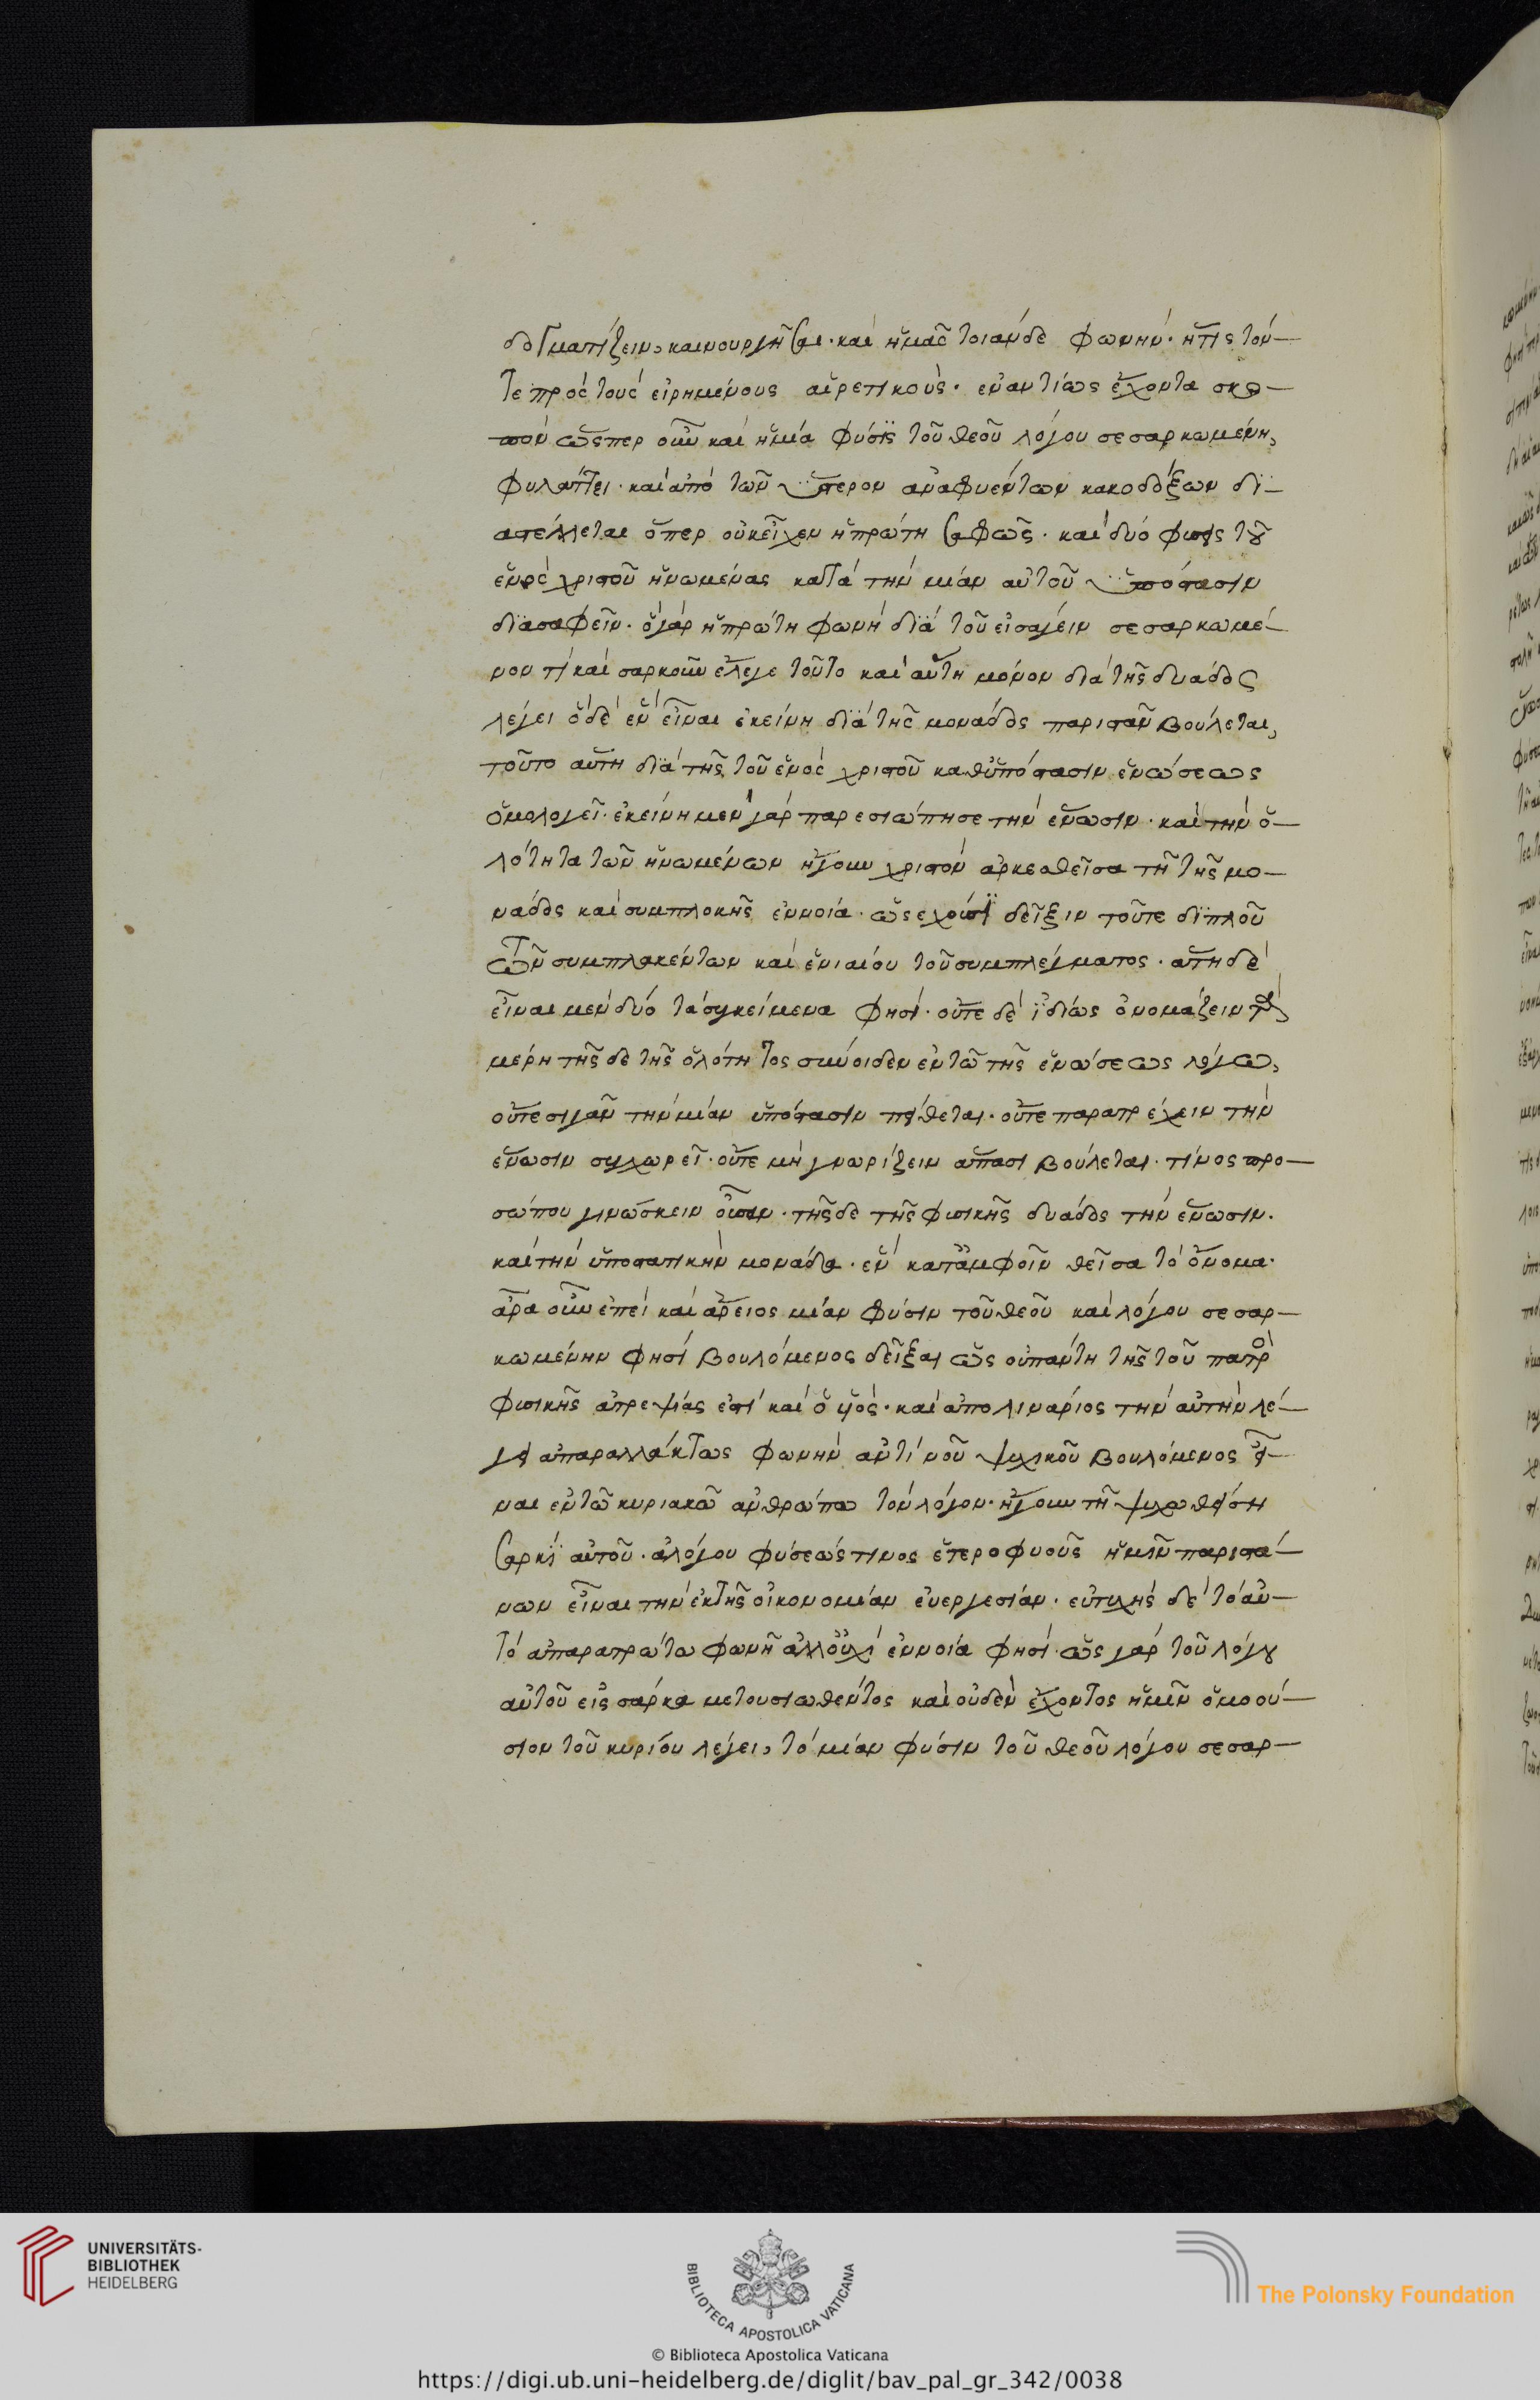 δογματίζειν, καινουργῆσαι· καὶ ἡμᾶς τοιάνδε φωνὴν· ἥτις τόν–
τε πρὸς τοὺς εἰρημένους αἱρετικοὺς· ἐναντίως ἔχοντα σκο–
πὸν ὥσπερ οὖν καὶ ἡ μία φύσις τοῦ θεοῦ λόγου σεσαρκωμένη,
φυλάττει· καὶ ἀπὸ τῶν ὕστερον ἀναφυέντων κακοδόξων δι–
αστέλλεται ὅπερ οὐκ εἶχεν ἡ πρώτη σαφῶς· καὶ δύο φύσεις τοῦ
ἑνὸς χριστοῦ ἡνωμένας κατὰ τὴν μίαν αὐτοῦ ὑπόστασιν
διασαφεῖν· ὃ γὰρ ἡ πρώτη φωνὴ διὰ τοῦ εἰσαγειν σεσαρκωμέ–
νον τί καὶ σαρκοῦν ἔλεγε τοῦτο καὶ αὕτη μόνον διὰ τῆς δυάδος
λέγει ὃ δὲ ἓν εἶναι ἐκείνη διὰ τῆς μονάδος παριστᾶν βούλεται,
τοῦτο αὕτη διὰ τῆς τοῦ ἑνὸς χριστοῦ καθ᾽ ὑπόστασιν ἑνώσεως
ὁμολογεῖ· ἐκείνη μὲν γὰρ παρεσιώπησε τὴν ἕνωσιν· καὶ τὴν ὁ–
λότητα τῶν ἡνωμένων ἤγουν χριστὸν ἀρκεσθεῖσα τῆ τῆς μο–
νάδος καὶ συμπλοκῆς ἐννοία· ὡς δεῖξιν τοῦτε διπλοῦ
τῶν συμπλακέντων καὶ ἑνιαίου τοῦ συμπλέγματος· αὕτη δὲ
εἶναι μὲν δύο τὰ συγκείμενα φησὶ· οὔτε δὲ ἰδίως ὀνομάζειν τὰ
μέρη τῆς δὲ τῆς ὁλότητος σύνοιδεν ἐν τῶ τῆς ἑνώσεως λόγω,
οὔτε σιγᾶν τὴν μίαν ὑπόστασιν πείθεται· οὔτε παρατρέχειν τὴν
ἕνωσιν συγχωρεῖ· οὔτε μὴ γνωρίζειν ἅπασι βούλεται· τίνος προ–
σώπου γινώσκειν οὖσαν· τῆς δὲ τῆς φυσικῆς δυάδος τὴν ἕνωσιν·
καὶ τὴν ὑποστατικὴν μονάδα· ἓν κατ᾽ ἀμφοῖν θεῖσα τὸ ὄνομα·
ἆρα οὖν ἐπεὶ καὶ ἄρειος μίαν φύσιν τοῦ θεοῦ καὶ λόγου σεσαρ–
κωμένην φησὶ βουλόμενος δεῖξαι ὡς οὐ πάντη τῆς τοῦ πατρὸ
φυσικῆς ἀτρεψίας ἐστὶ καὶ ὁ υἱός· καὶ ἀπολινάριος τὴν αὐτὴν λέ–
γει ἀπαραλλάκτως φωνὴν ἀντὶ νοῦ ψυχικοῦ βουλόμενος εἶ–
ναι ἐν τῶ κυριακῶ ἀνθρώπω τὸν λόγον· ἤγουν τῆ ψυχωθείση
σαρκὶ αὐτοῦ· ἀλόγου φύσεώς τινος ἑτεροφυοῦς ἡμῖν παριστά–
νων εἶναι τὴν ἐκ τῆς οἰκονομίαν ἐνεργεσίαν· εὐτυχὴς δὲ τὸ αὐ–
τὸ ἀπαρατρώτω φωνῆ ἀλλ᾽ οὐχὶ ἐννοία φησὶ· ὡς γὰρ τοῦ λόγου
αὐτοῦ εἰς σάρκα μετουσιωθέντος καὶ οὐδὲν ἔχοντος ἡμῖν ὁμοού–
σιον τοῦ κυρίου λέγει, τὸ μίαν φύσιν τοῦ θεοῦ λόγου σεσαρ–
UNIVERSITÄTS-
BIBLIOTHEK
HEIDELBERG
BIBLIOTECA APOSTOLICA VATICANA
The Polonsky Foundation
© Biblioteca Apostolica Vaticana
https://digi.ub.uni-heidelberg.de/diglit/bav_pal_gr_342/0038